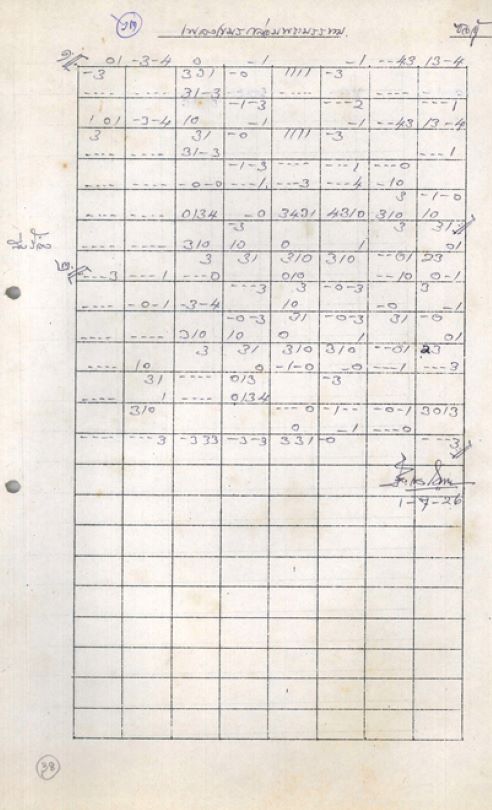 เพลงเขมรกล่อมพระบรรทม ซอด้วง
01 -3-4 0 -1 -1 --43 13-4
-3 331 -0 1111 -3
---- ---- 31-3 ---- ---- ----
-1-3 ---2 ---1
101 -3-4 10 -1 -1 --43 13-4
3 31 -0 1111 -3
---- ---- 31-3 ---1
-1-3 ---- ---1 ---0
---- ---- -0-0 ---1 ---3 ---4 -10
3 -1-0
---- ---- 0134 -0 3431 4310 310 10
-3 3 31
---- ---- 310 10 0 1 01
3 31 310 310 --01 23
---3 ---1 ---0 010 --10 0-1
---3 3 -0-3 3
---- -0-1 -3-4 10 -0 -1
-0-3 31 -0-3 31 -0
---- ---- 310 10 0 1 01
3 31 310 310 --01 23
---- 10 0 -1-0 -0 ---1 ---3
31 ---- 013 -3
---- 1 ---- 0134
310 ---0 -1-- -0-1 3013
0 -1 ---0
---- ---3 -333 -3-3 331 -0 ---3
1-7-26
38